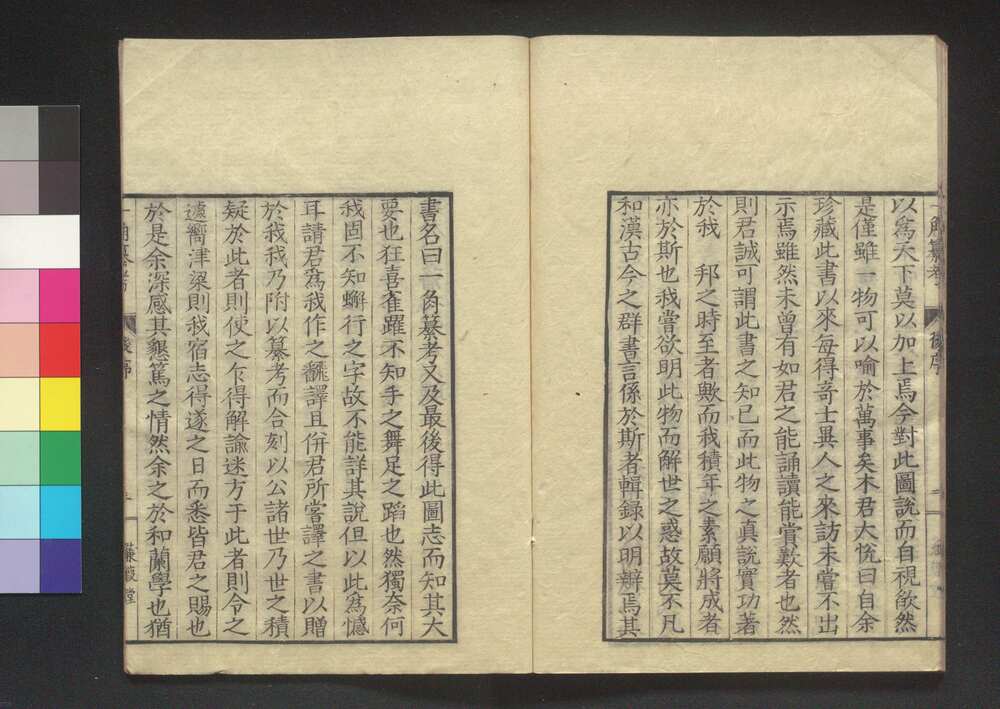 一角纂考
後序
以爲天下莫以加上焉今對此圖說而自視欿然
是僅雖一物可以喻於萬事矣木君大悅曰自余
珍藏此書以來每得奇士異人之來訪未嘗不出
示焉雖然未曾有如君之能誦讀能賞歎者也然
則君誠可謂此書之知已而此物之真說實功著
於我　邦之時至者歟而我積年之素願將成者
亦於斯也我嘗欲明此物而解世之惑故莫不凡
和漢古今之群書言係於斯者輯録以明辯焉其
書名曰一角纂考又及最後得此圖志而知其大
要也狂喜雀躍不知手之舞足之蹈也然獨奈何
我固不知蠏行之字故不能詳其說但以此爲憾
耳請君爲我作之飜譯且併君所嘗譯之書以贈
於我我乃附以纂考而合刻以公諸世乃世之積
疑於此者則使之乍得解諭迷方于此者則令之
遽嚮津梁則我宿志得遂之日而悉皆君之賜也
於是余深感其懇篤之情然余之於和蘭學也猶
一角纂考
後序
二
蒹葭堂